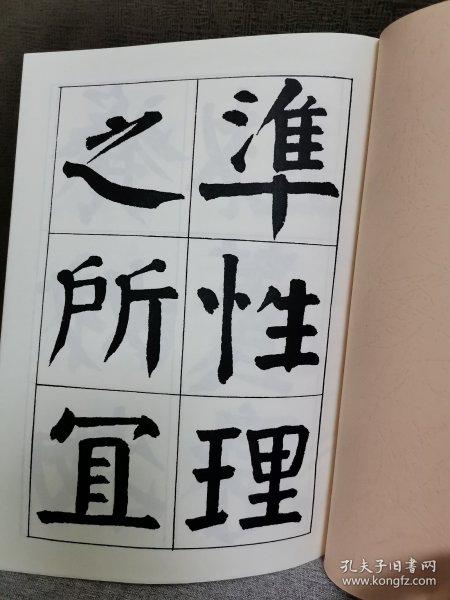 準性理
之所冝
孔夫子旧书网
www.kongfz.com